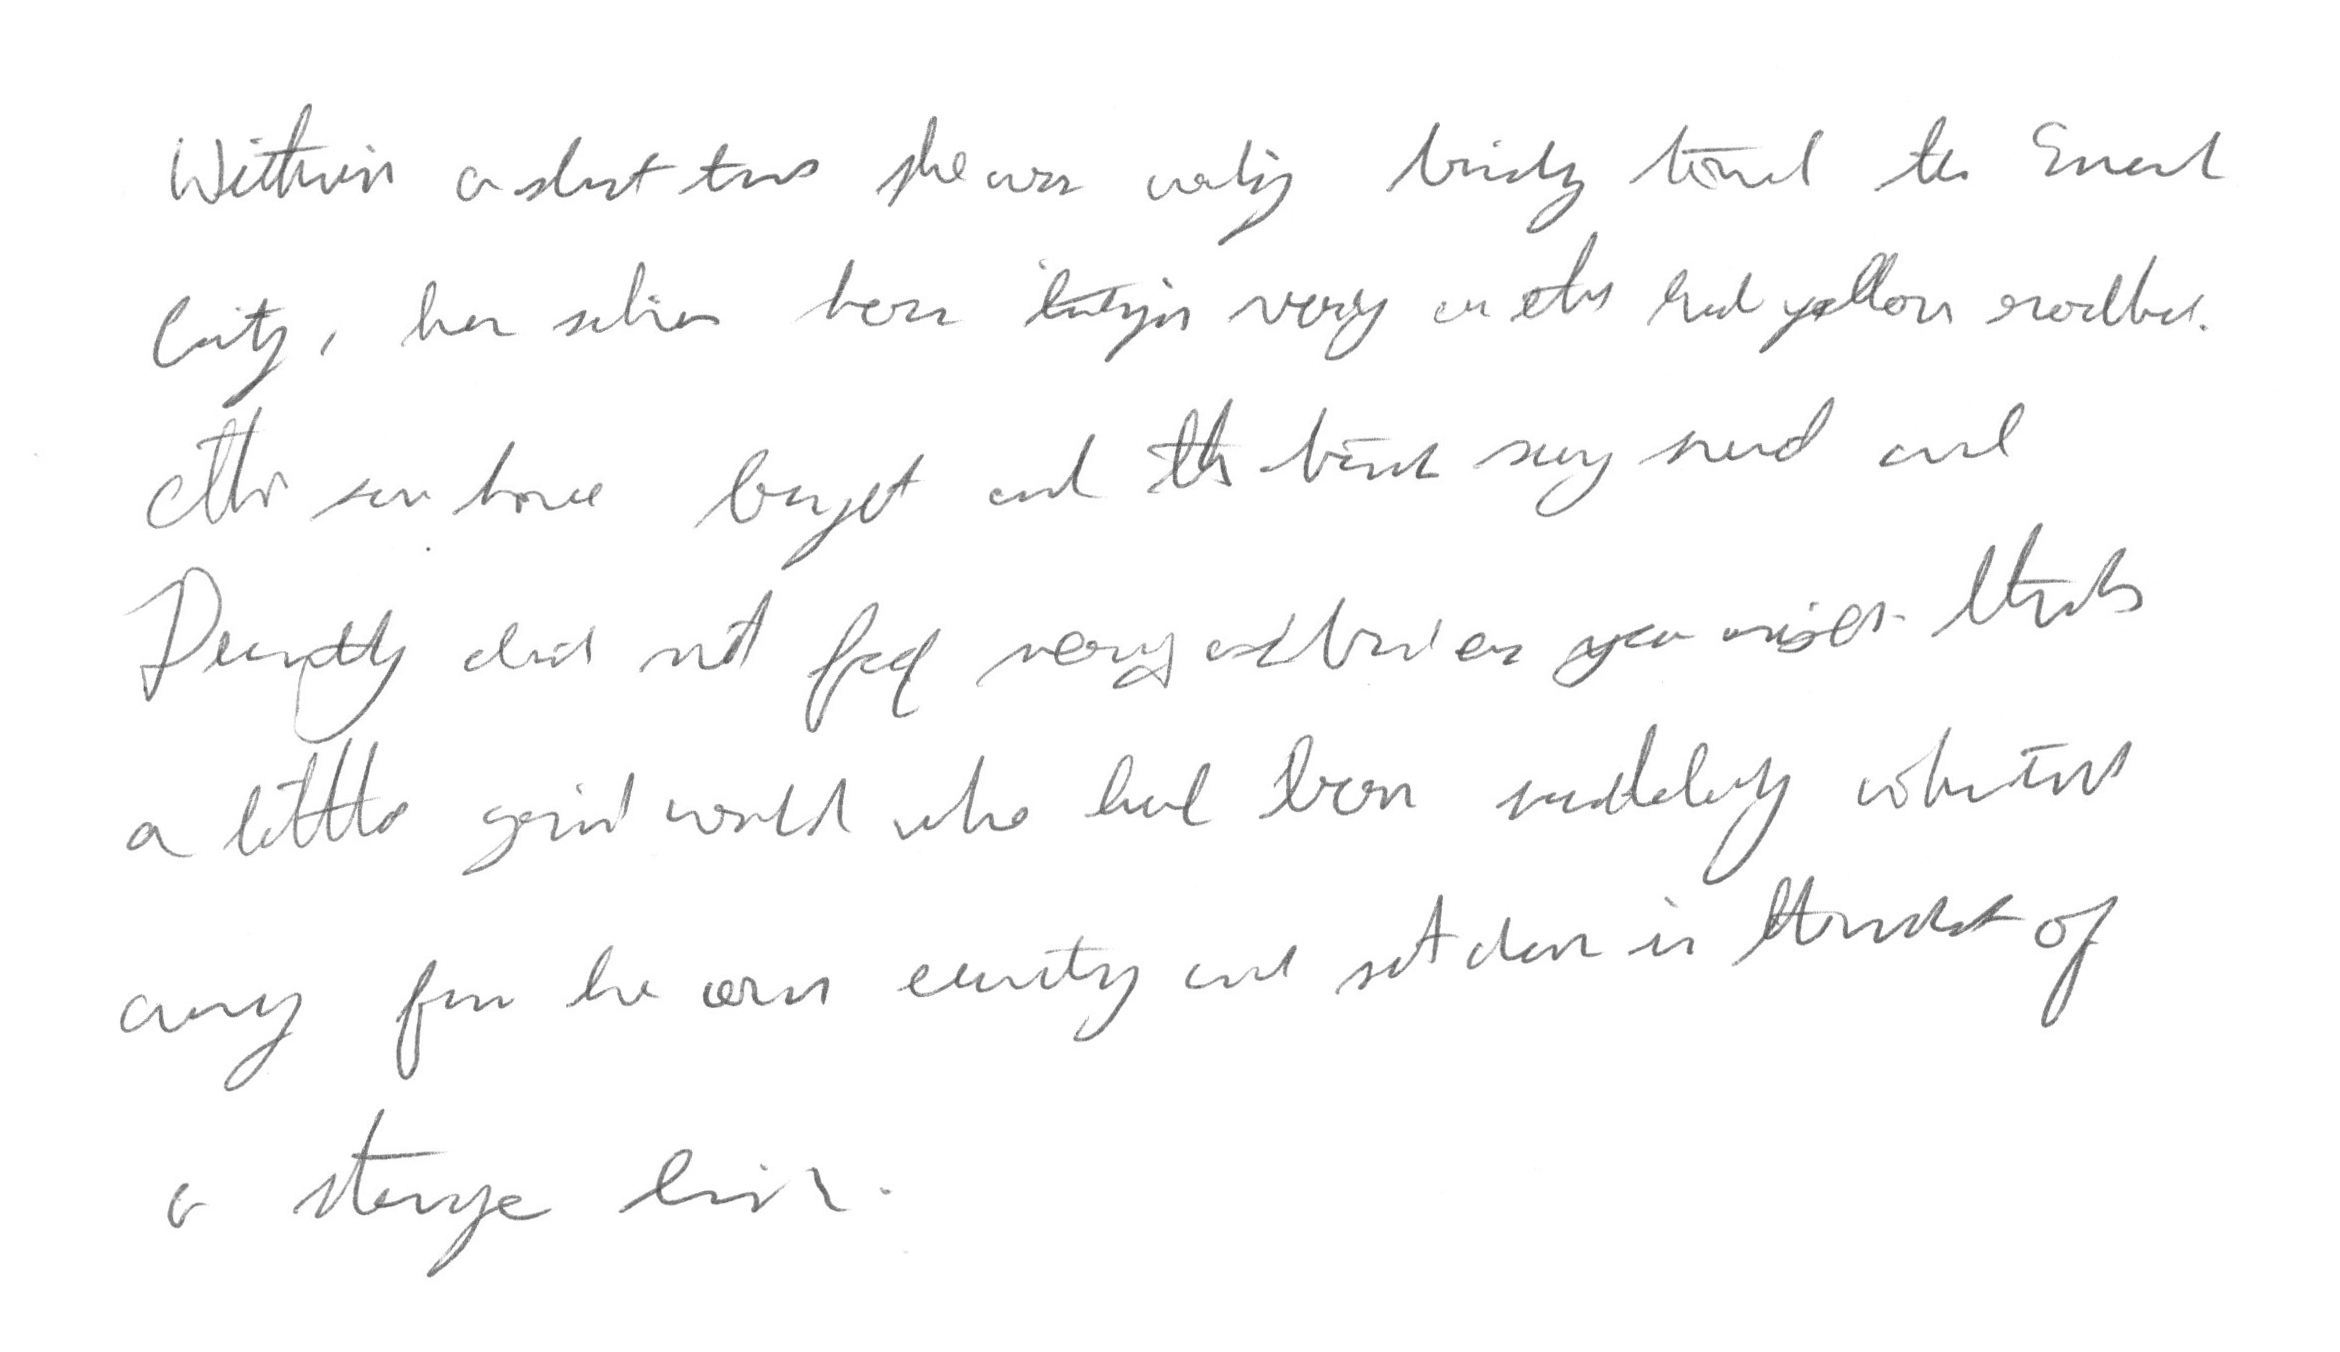 Within a short time she was walking briskly toward the Emerald
City, her silver shoes tinkling merrily on the hard yellow roadbed.
The sun shone bright and the birds sang sweet and
Dorothy did not feel nearly as bad as you might think
a little girl would who had been suddenly whisked
away from her own country and set down in the midst of
a strange land.